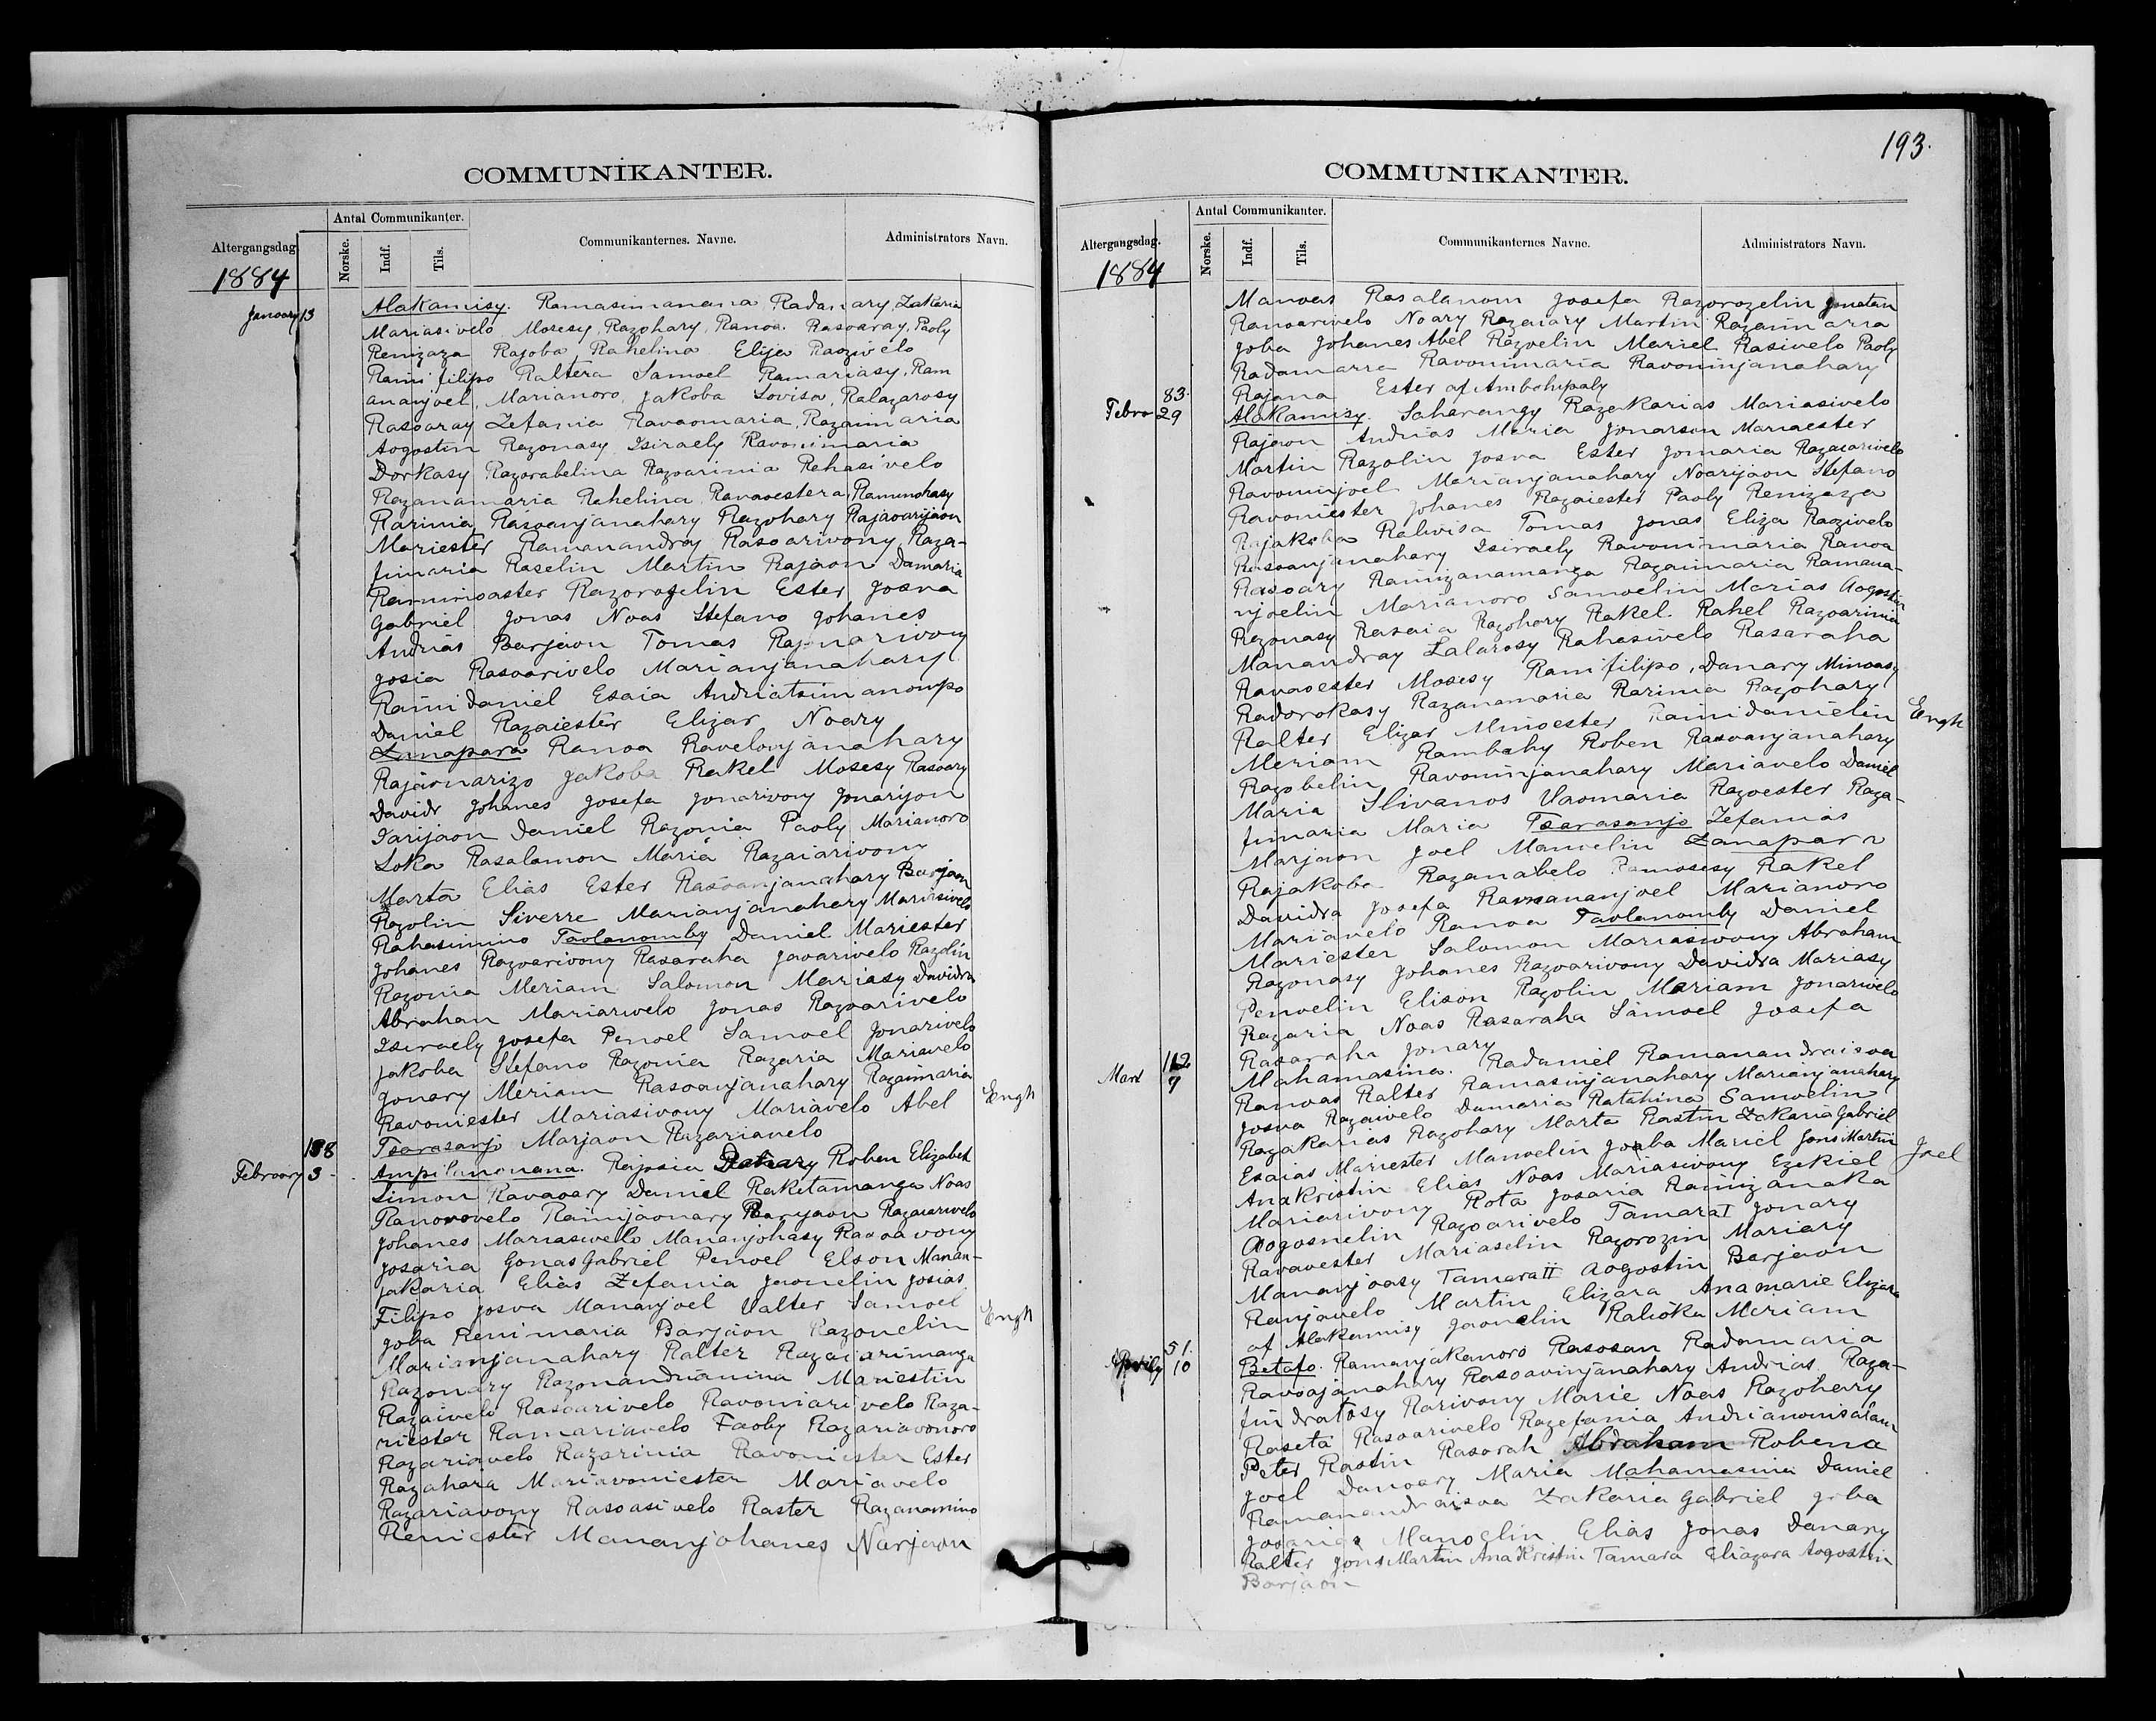 193.
COMMUNIKANTER.
Altergangsdag
Antal Communikanter.
Norske.
Indf.
Tils.
Communikanternes. Navne.
Administrators Navn.
1884
January 13
Alakamisy. Ramasimanana Radanary, Zakaria
Mariasivelo Mosesy, Razohary, Ranoa. Rasoaray, Paoly
Renizaza Rajoba, Rahelina Elija Raozivelo
Raini filipo Raltera Samoel Ramariasy, Ram
ananjoel, Marianoro, Jakoba Lovisa, Ralazarosy
Rasoaray Zefania Ravaomaria, Razaimaria
Aogostin Razonasy Isiraely Ravonimaria
Dorkasy Razorabelina Razoarinia Rehasivelo
Razanamaria Rahelina Ravaoestera, Raminohasy
Rarinia Rasoanjanahary Razohary Rajaoarijaon
Mariester Ramanandray Rasoarivony Raza-
fimaria Raselin Martin Rajaon Damaria
Raminoaster Razorozelin Ester Josva
Gabriel Jonas Noas Stefano Johanes
Andrias Barjaon Tomas Rajonarivony
Josia Rasoarivelo Marianjanahary
Raini Daniel Esaia Andriatsimanompo
Daniel Razaiester Elizar Noary
Zanapara Ranoa Ravelonjanahary
Rajaonarizo Jakoba Rakel Mosesy Rasoary
Davidr Johanes Josefa Jonarivony Jonarijon
Iarijaon Daniel Razonia Paoly Marianoro
Loka Rasalamon Maria Razaiarivony
Marta Elias Ester Rasoanjanahary Barjaon
Razolin Siverre Marianjanahary Mariasivelo
Rahasimino Taolanomby Daniel Mariester
Johanes Razoarivony Rasaraha Javarivelo Razolin
Razonia Meriam Salomon Mariasy Davidra
Abrahan Mariarivelo Jonas Razoarivelo
Isiraely Josefa Penoel Samoel Jonarivelo
Jakoba Stefano Razonia Razaria Mariavelo
Jonary Meriam Rasoanjanahary Razaimaria
Ravoniester Mariasivony Mariavelo Abel
Engh
Tsarasanjo Marjaon Razarianelo
188
February 3
Ampilanonana. Rajosia Danary Roben Elizabet
Simon Ravaoary Daniel Raketamanga Noas
Ranorovelo Rainijaonary Barjaon Razaiarivelo
Johanes Mariasivelo Mananjohasy Rasoavony
Josaria Gonas Gabriel Penoel Elson Manan-
jakaria Elias Zefania Jaonelin Josias
Filipo Josva Mananjoel Valter Samoel
Joba Renimaria Barjaon Razonelin
Engh
Marianjanahary Ralter Razaiarimanga
Razonary Razonandrianina Mariestin
Razaivelo Rasoarivelo Ravoniarivelo Raza-
riester Ramariavelo Faoly Razariavonoro
Razariavelo Razarinia Ravoniester Ester
Razahara Mariavoniester Mariavelo
Razariavony Rasoasivelo Raster Razanamino
Reniester Mananjohanes Narjaon
COMMUNIKANTER.
Altergangsdag.
Antal Communikanter.
Norske.
Indf.
Tils.
Communikanternes Navne.
Administrators Navn.
1884
Manoas Rasalamon Josefa Razorozelin Jonatan
Ranoarivelo Noary Razaiary Martin Razaimaria
Joba Johanes Abel Razoelin Mariel Rasivelo Paoly
Radamarra Ravonimaria Ravoninjanahary
Rajona Ester af Ambohipaly
83.
Febru 29
Alakamisy. Saharangy Razakarias Mariasivelo
Rajaon Andrias Maria Jonarson Mariaester
Martin Razolin Josva Ester Jomaria Razaiarivelo
Ravoninjoel Marianjanahary Noarijaon Stefano
Ravoniester Johanes Razaiester Paoly Renizaza
Rajakoba Ralivisa Tomas Jonas Eliza Raozivelo
Rasoanjanahary Isiraely Ravonimaria Ranoa
Rasoary Rainizanamanga Razaimaria Ramana-
njoelin Marianoro Samoelin Marias Aogostin
Razonasy Rasaia Razohary Rakel. Rahel Razoarinia
Manandray Lalarosy Rahasivelo Rasaraha
Ravaoester Mosesy Rainifilipo, Danary Minoasy
Radorokasy Razanamaria Rarinia Razohary
Ralter Elizar Minoester Rainidanielin
Engh
Meriam Rambahy Roben Rasoanjanahary
Razobelin Ravoninjanahary Mariavelo Daniel
Maria Silvanos Vaomaria Razoester Raza-
fimaria Maria Tsarasanjo Zefanias
Marjaon Joel Manoelin Zanapara
Rajakoba Razanabelo Ramosesy Rakel
Davidra Josefa Ramananjoel Marianoro
Mariavelo Ranoa Taolanomby Daniel
Mariester Salomon Mariasivony Abraham
Razonasy Johanes Razoarivony Davidra Mariasy
Penoelin Elison Razolin Mariam Jonarivelo
Razaria Noas Rasaraha Samoel Josefa
Rasaraha Jonary
112
Mars 9
Mahamasina. Radaniel Ramanandraisoa
Ranoas Ralter Ramasinjanahary Marianjanahary
Josva Razaivelo Damaria Ratahina Samoelin
Razakarias Razohary Marta Rastin Zakaria Gabriel
Esaias Mariester Manoelin Joaba Mariel Jons Martin
Joel
Anakristin Elias Noas Mariasivony Ezekiel
Mariarivony Rota Josaria Rainizanaka
Aogosnelin Razoarivelo Tamara I Jonary
Ravaoester Mariaselin Razorozin Mariary
Mananjoasy Tamara II Aogostin Barjaon
Ranjavelo Martin Elizara Anamarie Elizara
af Alakamisy Jaonelin Ralioka Meriam
51.
Aprily 10
Betafo. Ramanjakanoro Rasosan Radamaria
Ravoajanahary Rasoavinjanahary Andrias Raza-
findratosy Rarivony Marie Noas Razohery
Raseta Rasoarivelo Razefania Andrianonisalam
Peter Rastin Rasarah Abraham Robena
Joel Danoary Maria Mahamasina Daniel
Ramanandraisoa Zakaria Gabriel Joba
Josarias Manoelin Elias Jonas Danary
Ralter Jons Martin Ana Kristin Tamara Eliazara Aogostin
Barjaon